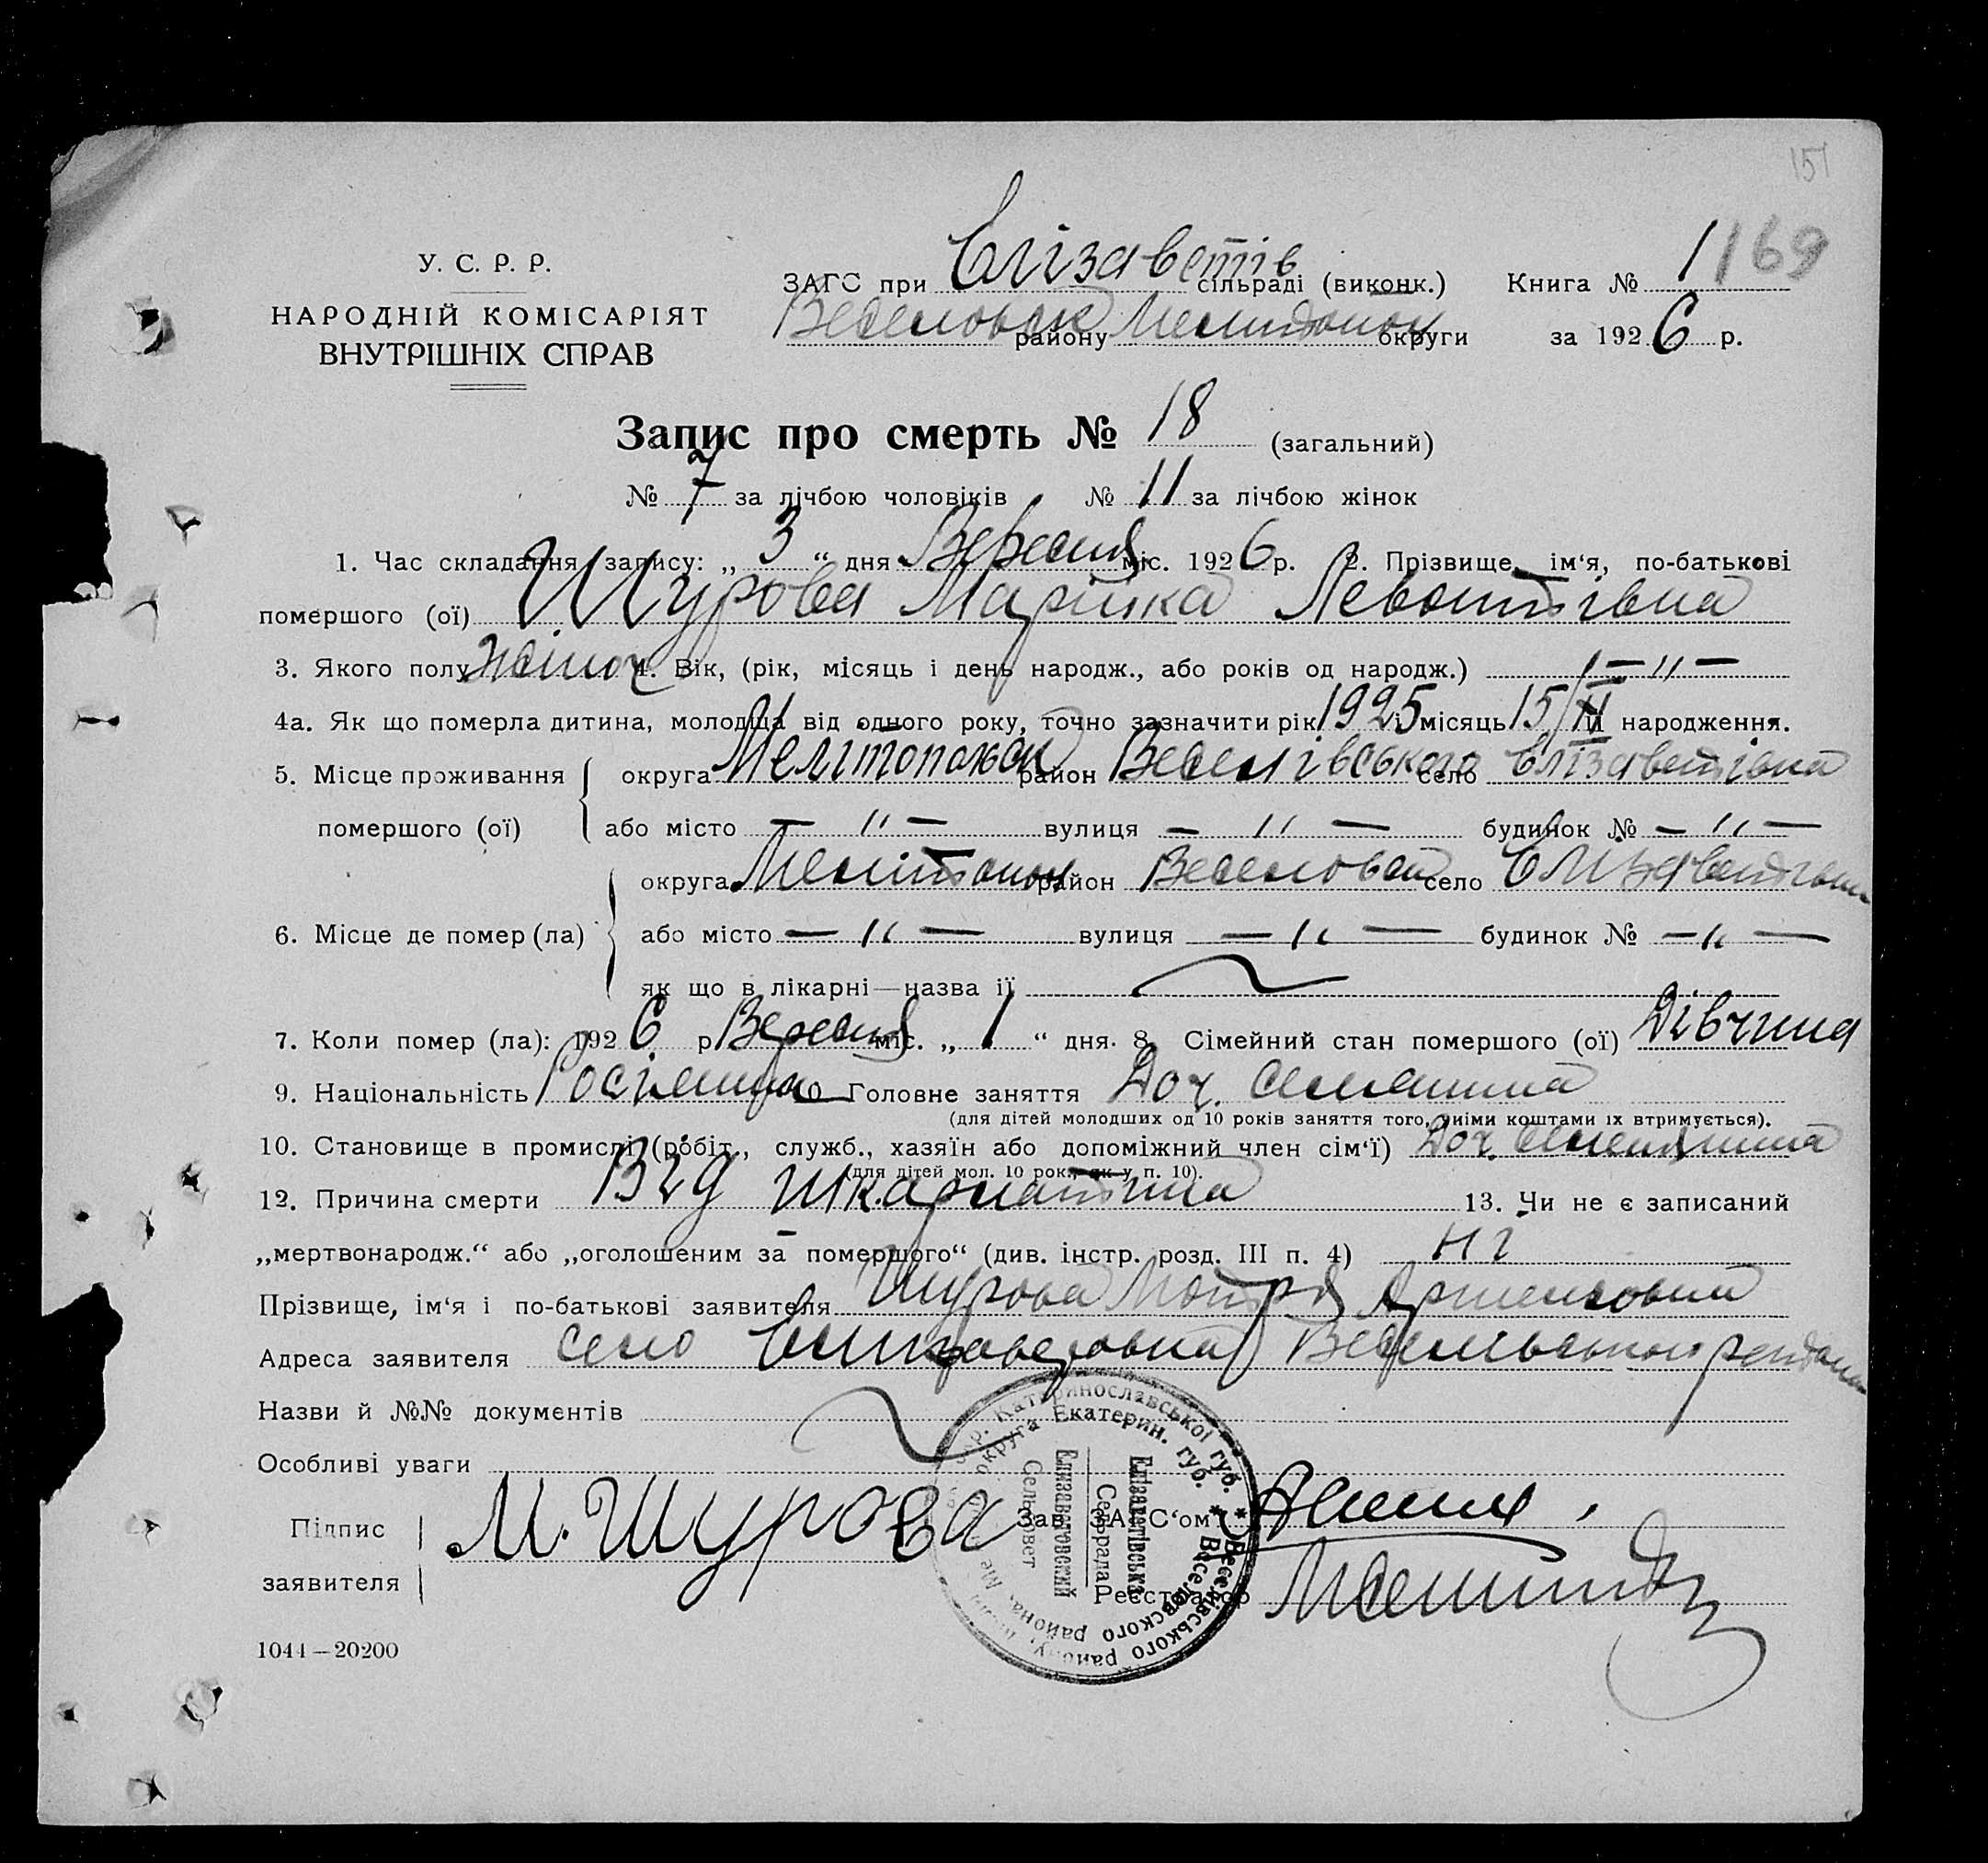 151
У. С. Р. Р.
НАРОДНІЙ КОМІСАРІЯТ
ВНУТРІШНІХ СПРАВ
ЗАГС при Єлізаветів сільраді (виконк.) Книга № 1 169
Веселовск району Мелитопол округи за 1926 р.
Запис про смерть № 18 (загальний)
№ 7 за лічбою чоловіків № 11 за лічбою жінок
1. Час складання запису: „ 3 “ дня Вересня міс. 1926 р. 2. Прізвище, ім‘я, по-батькові
помершого (ої) Шурова Марійка Левонтівна
3. Якого полу жіноч 4. Вік, (рік, місяць і день народж., або років од народж.) 1 — " —
4а. Як що померла дитина, молодша від одного року, точно зазначити рік 1925 і місяць 15/II й народження.
5. Місце проживання округа Мелітопольск район Веселівського село Єлізаветівка
помершого (ої) або місто — " — вулиця — " — будинок № — " —
округа Мелітопол район Веселовск село Єлізаветівка
6. Місце де помер (ла) або місто — " — вулиця — " — будинок № — " —
як що в лікарні—назва її
7. Коли помер (ла): 1926 р Вересня міс. „ 1 “ дня. 8. Сімейний стан помершого (ої) Дівчина
9. Національність Росіянка 10 Головне заняття Доч. селянина
(для дітей молодших од 10 років заняття того, чиїми коштами їх втримується).
10. Становище в промислі (робіт., служб., хазяїн або допоміжний член сім‘ї) Доч. селянина
(для дітей мол. 10 рок., як у п. 10).
12. Причина смерти Від шкарлатина 13. Чи не є записаний
„мертвонародж.“ або „оголошеним за помершого“ (див. інстр. розд. III п. 4) ні
Прізвище, ім‘я і по-батькові заявителя Шурова Мотря
Адреса заявителя село
Назви й №№ документів
Особливі уваги
Підпис
заявителя
М. Шурова
Зав. ЗАГС‘ом
Реєстратор
Катеринославської губ. * Веселівського району
округа Екатерин. губ. * Веселовского района, Ме
Елізаветівська
Сельрада
Елизаветовский
Сельсовет
1044—20200